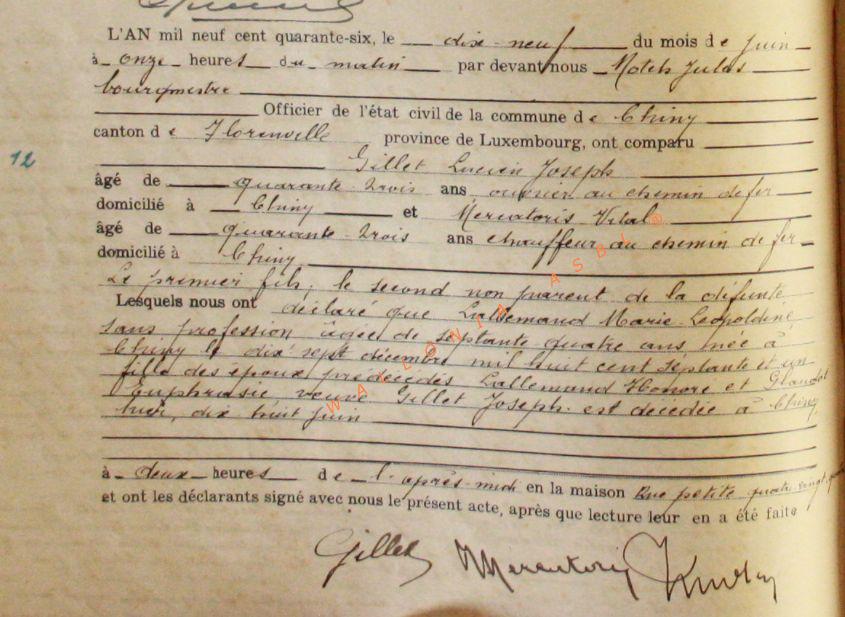 L'AN mil neuf cent quarante-six, le dix-neuf du mois de juin
à onze heures du matin par devant nous Noteh Jules
bourgmestre
Officier de l'état civil de la commune de Chiny
canton de Florenville province de Luxembourg, ont comparu
12
Gillet Lucien Joseph
âgé de quarante-trois ans ouvrier au chemin de fer
domicilié à Chiny et Mercatoris Vital
âgé de quarante-trois ans chauffeur au chemin de fer
domicilié à Chiny
Le premier fils, le second non parent de la défunte
Lesquels nous ont déclaré que Lallemand Marie-Léopoldine
sans profession âgée de septante-quatre ans, née à
Chiny le dix sept décembre mil huit cent septante et un
fille des époux prédécédés Lallemand Honoré et Glaudot
Euphrasie veuve Gillet Joseph est décédée à Chiny
hier, dix huit juin
à deux heures de l'après-midi en la maison Rue petite quatre-vingt
et ont les déclarants signé avec nous le présent acte, après que lecture leur en a été faite
Gillet Mercatoris
WALLONIA ASBL ©